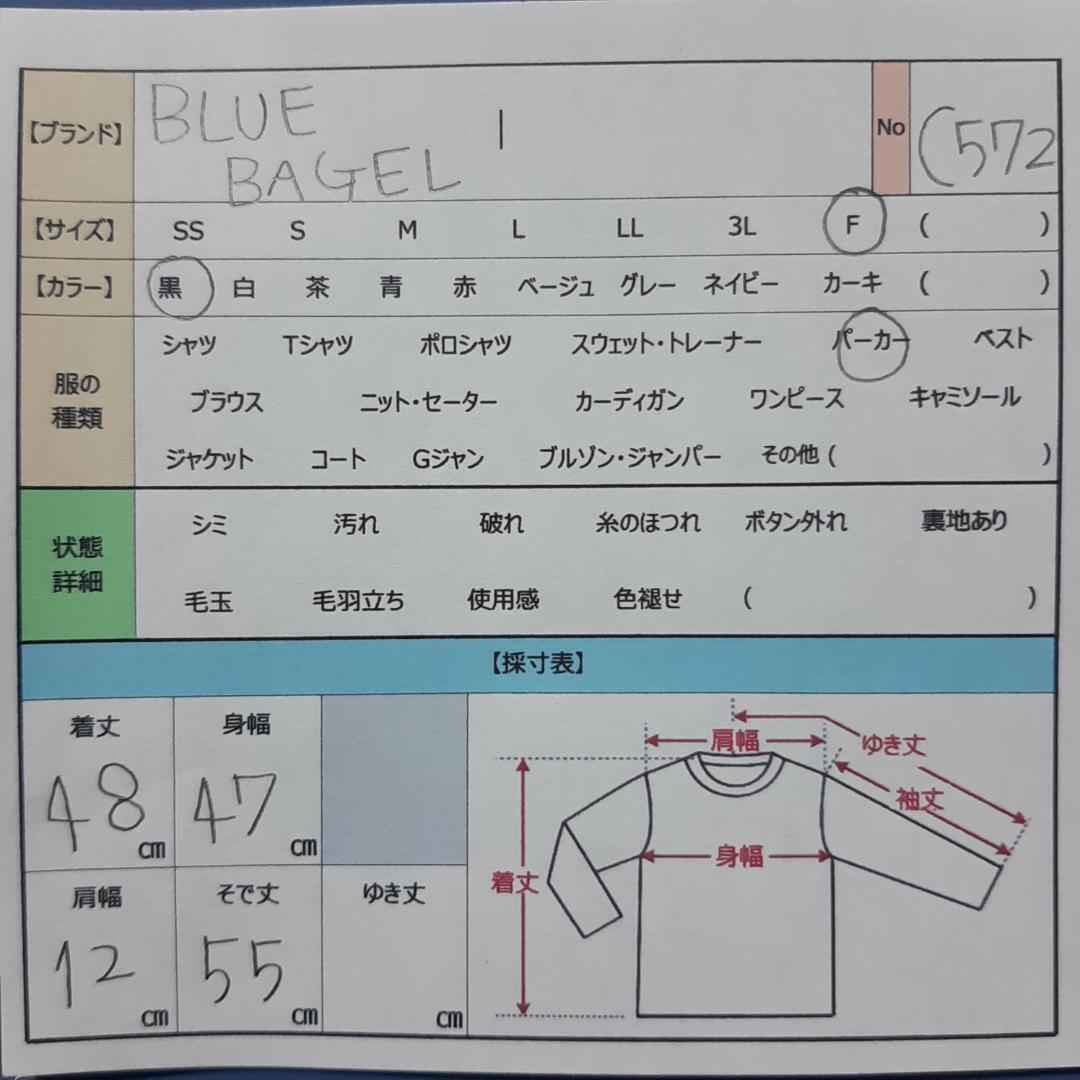 【ブランド】 BLUE No (572
BAGEL
【サイズ】 SS S M L LL 3L F ( )
【カラー】 黒 白 茶 青 赤 ベージュ グレー ネイビー カーキ ( )
服の種類 シャツ Tシャツ ポロシャツ スウェット・トレーナー パーカー ベスト
ブラウス ニット・セーター カーディガン ワンピース キャミソール
ジャケット コート Gジャン ブルゾン・ジャンパー その他 ( )
状態詳細 シミ 汚れ 破れ 糸のほつれ ボタン外れ 裏地あり
毛玉 毛羽立ち 使用感 色褪せ ( )
【採寸表】
着丈 身幅
48 cm 47 cm
肩幅 そで丈 ゆき丈
12 cm 55 cm cm
肩幅 ゆき丈
袖丈
身幅
着丈